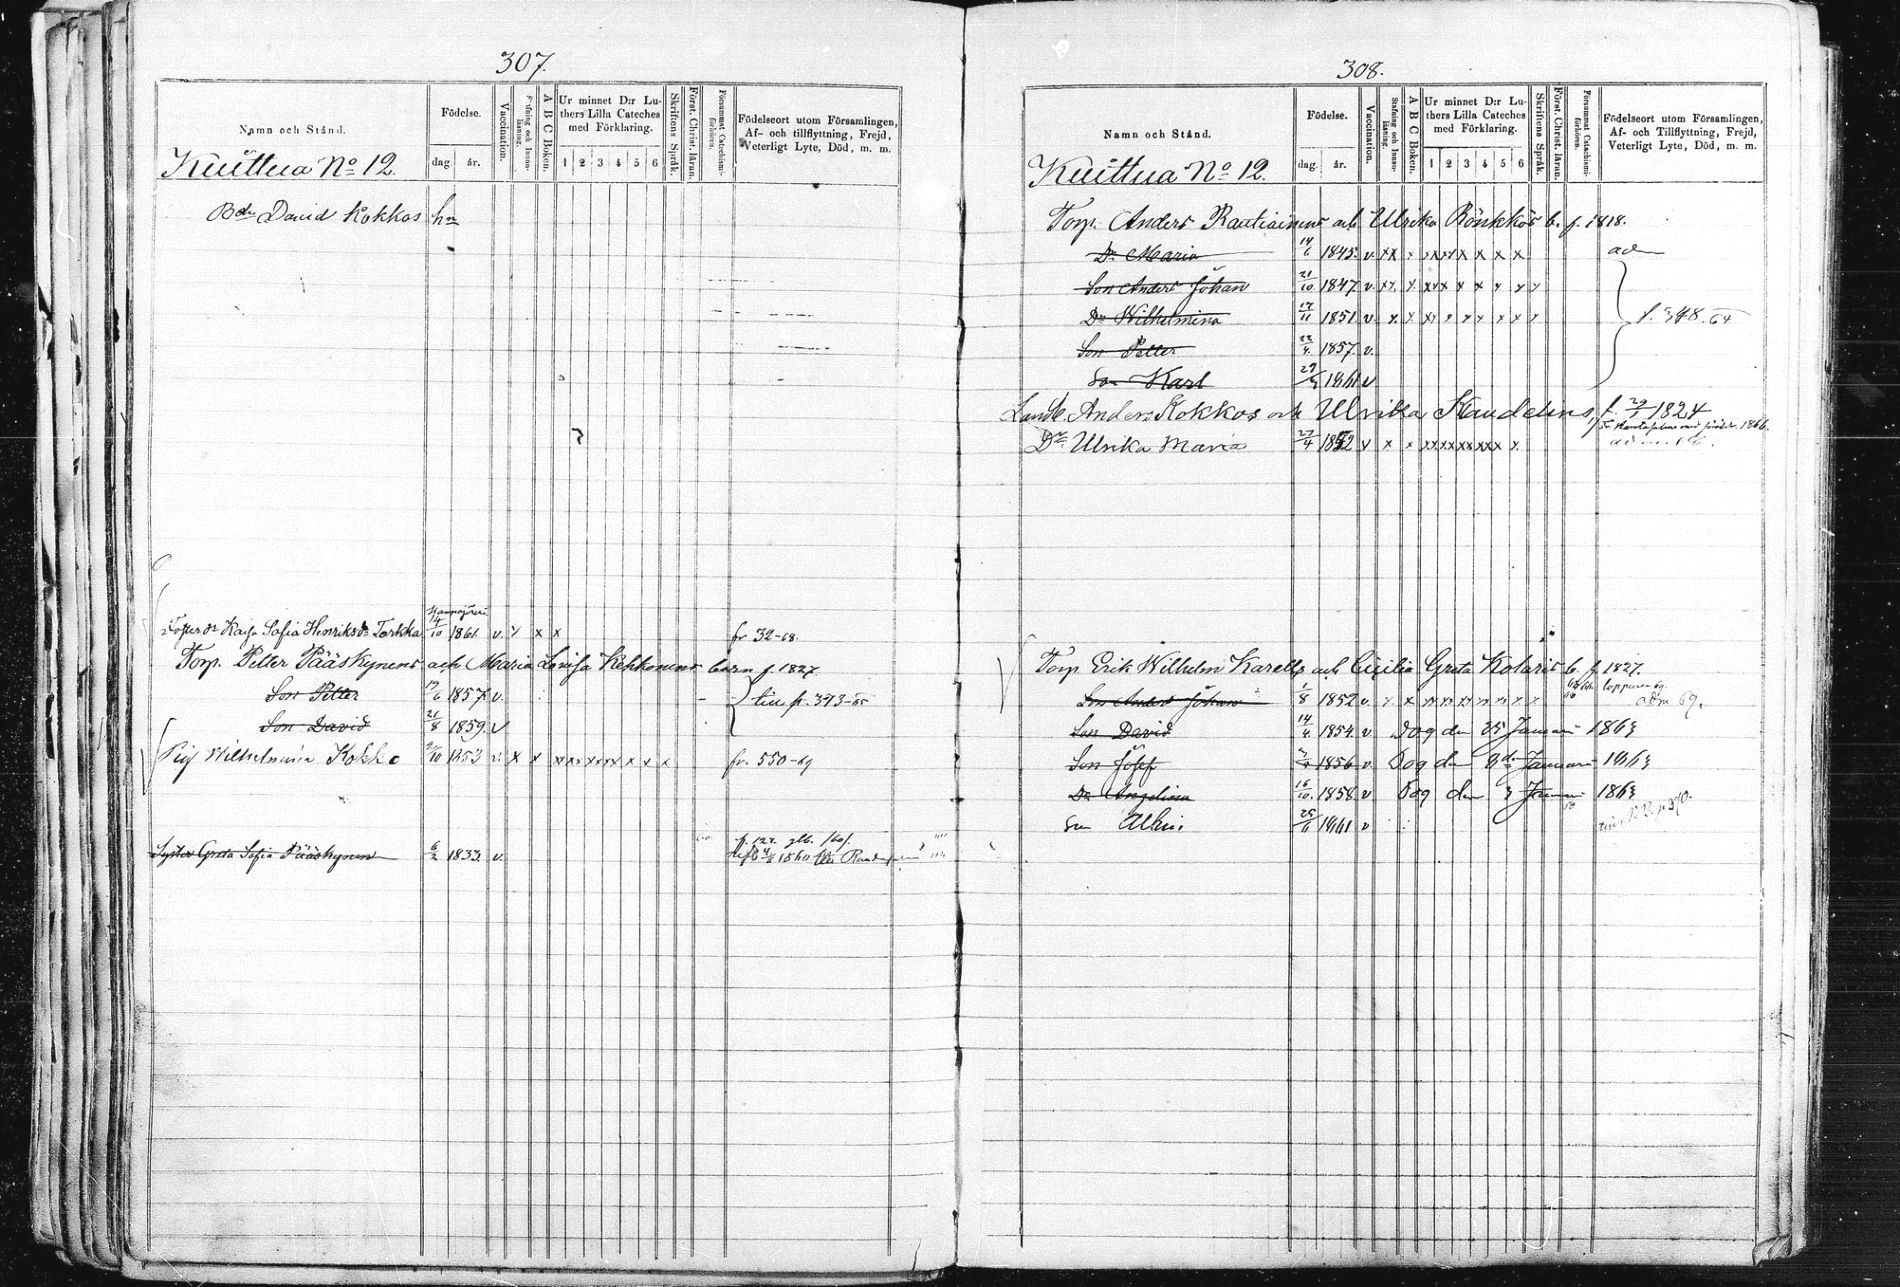 307.
Namn och Stånd.
Födelse.
dag. år.
Vaccination.
Stafning och Innanläsning.
A B C Boken.
Ur minnet D:r Luthers Lilla Cateches med Förklaring.
1 2 3 4 5 6
Skriftens Språk.
Först. Christ. läran.
Försummat Catechismiförhören.
Födelseort utom Församlingen,
Af- och tillflyttning, Frejd,
Veterligt Lyte, Död, m. m.
Kuittua No 12.
Bdn David Kokkos hn
Foster dr Kajsa Sofia Henriksdr Torkka 14/10 1861. v. x x x fr 32-68.
Torp. Petter Pääskynens och Maria Lovisa Kehkonens barn f. 1827.
Son Petter 19/6 1857. v.
till p. 393-65
Son David 21/8 1859. v
Pig Wilhelmina Kokko 1853 v. x x xxxxxxx x x x fr. 550-69
Syster Greta Sofia Pääskynen 6/2 1833. v.
308.
Namn och Stånd.
Födelse.
dag. år.
Vaccination.
Stafning och Innanläsning.
A B C Boken.
Ur minnet D:r Luthers Lilla Cateches med Förklaring.
1 2 3 4 5 6
Skriftens Språk.
Först. Christ. läran.
Försummat Catechismiförhören.
Födelseort utom Församlingen,
Af- och Tillflyttning, Frejd,
Veterligt Lyte, Död, m. m.
Kuittua No 12.
Torp. Anders Rautiainens och Ulrika Rönkkös b. f. 1818.
Dr Maria 14/6 1845. v. xx x xxxx x x x x adm
Son Anders Johan 21/10 1847 v. xx x xxx x x x x x
Dr Wilhelmina 17/11 1851 v. x x xx x x x x x x
p. 348. 64
Son Petter 22/4. 1857. v.
Son Karl 1861 v
Anders Kokkos och Ulrika Kaudelins f. 29/5 1824
Dr Ulrika Maria 27/4 1852 v x x xxxxxxxxx x
Torp. Erik Wilhelm Karells och Cicilia Greta Kolaris b. f. 1827.
Son Anders Johan 1/8 1852 v. x x xx xx xx x x x x adm 69.
Son David 14/4. 1854. v Dog den 25 Januari 1863
Son Josef 1856 v Dog den 9de Januari 1863
Dr Angelina 16/10. 1858. v Dog den 3 Januari 1863
Son Albin 25/6 1861 v